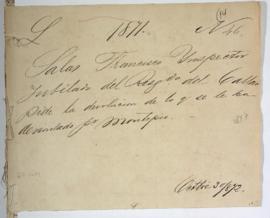 L 1871. N 46.
Salas Francisco Ynspector
Jubilado del Resgdo del Callao
Pide la devolucion de lo q se le ha
descontado pr Montepio
Octbre 30/872